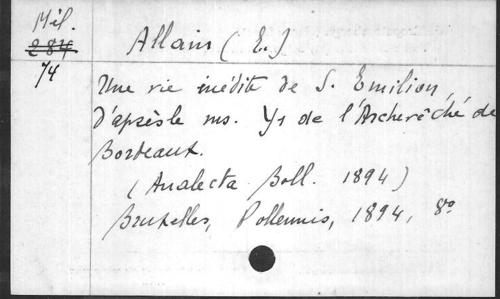 Mél.
284
74
Allain (E.)
Une vie inédite de S. Emilion,
d'après le ms. Y1 de l'Archevêché de
Bordeaux.
(Analecta Boll. 1894)
Bruxelles, Polleunis, 1894, 8º